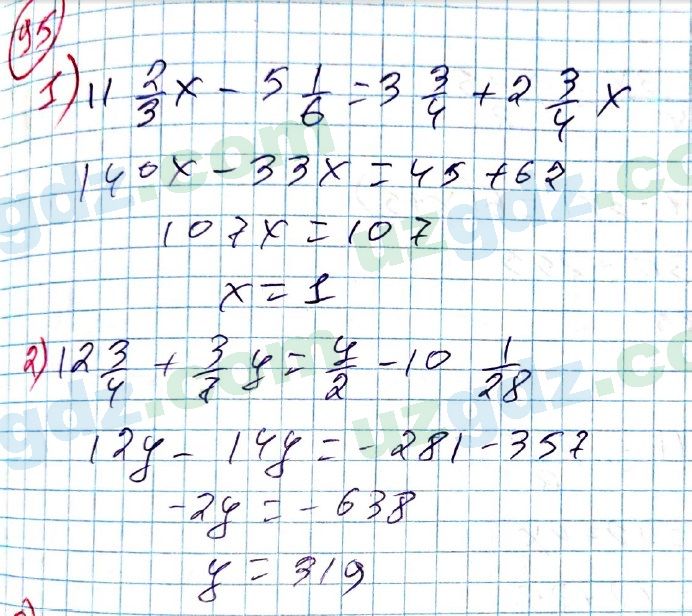 95
1) 11 2/3 x - 5 1/6 = 3 3/4 + 2 3/4 x
140x - 33x = 45 + 62
107x = 107
x = 1
2) 12 3/4 + 3/7 y = y/2 - 10 1/28
12y - 14y = -281 - 357
-2y = -638
y = 319
uzgdz.com